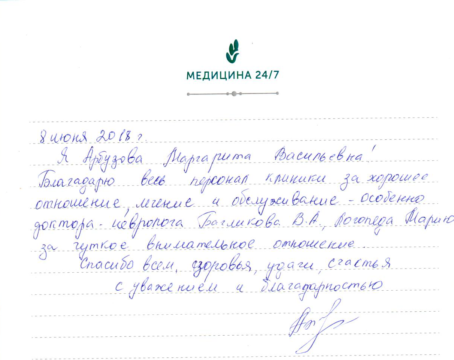 МЕДИЦИНА 24/7
8 июня 2018 г
Я Арбузова Маргарита Васильевна!
Благодарю весь персонал клиники за хорошее
отношение, лечение и обслуживание - особенно
доктора - невролога Багликова В.А, Логопеда Марию
за чуткое внимательное отношение
Спасибо всем, здоровья, удачи, счастья
с уважением и благодарностью